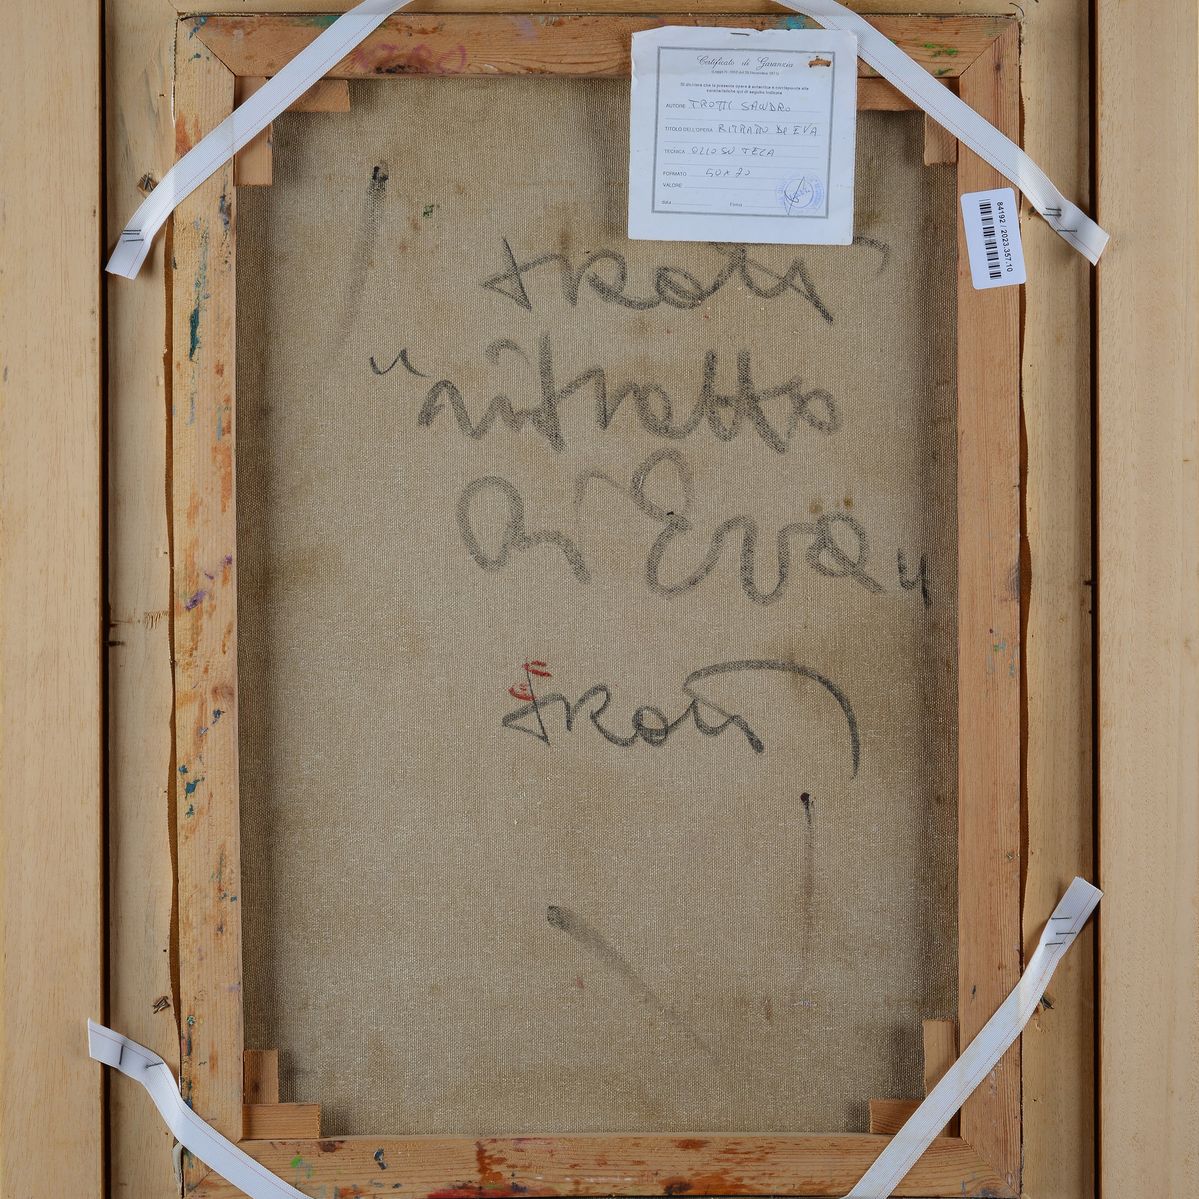 Certificato di Garanzia
(Legge N. 1062 del 20 Novembre 1971)
Si dichiara che la presente opera è autentica e corrisponde alle
caratteristiche qui di seguito indicate
AUTORE TROTTI SANDRO
TITOLO DELL'OPERA RITRATTO DI EVA
TECNICA OLIO SU TELA
FORMATO 50x70
VALORE
data Firma
84192 / 2023.357.10
trotti
"ritratto
di Eva"
trotti